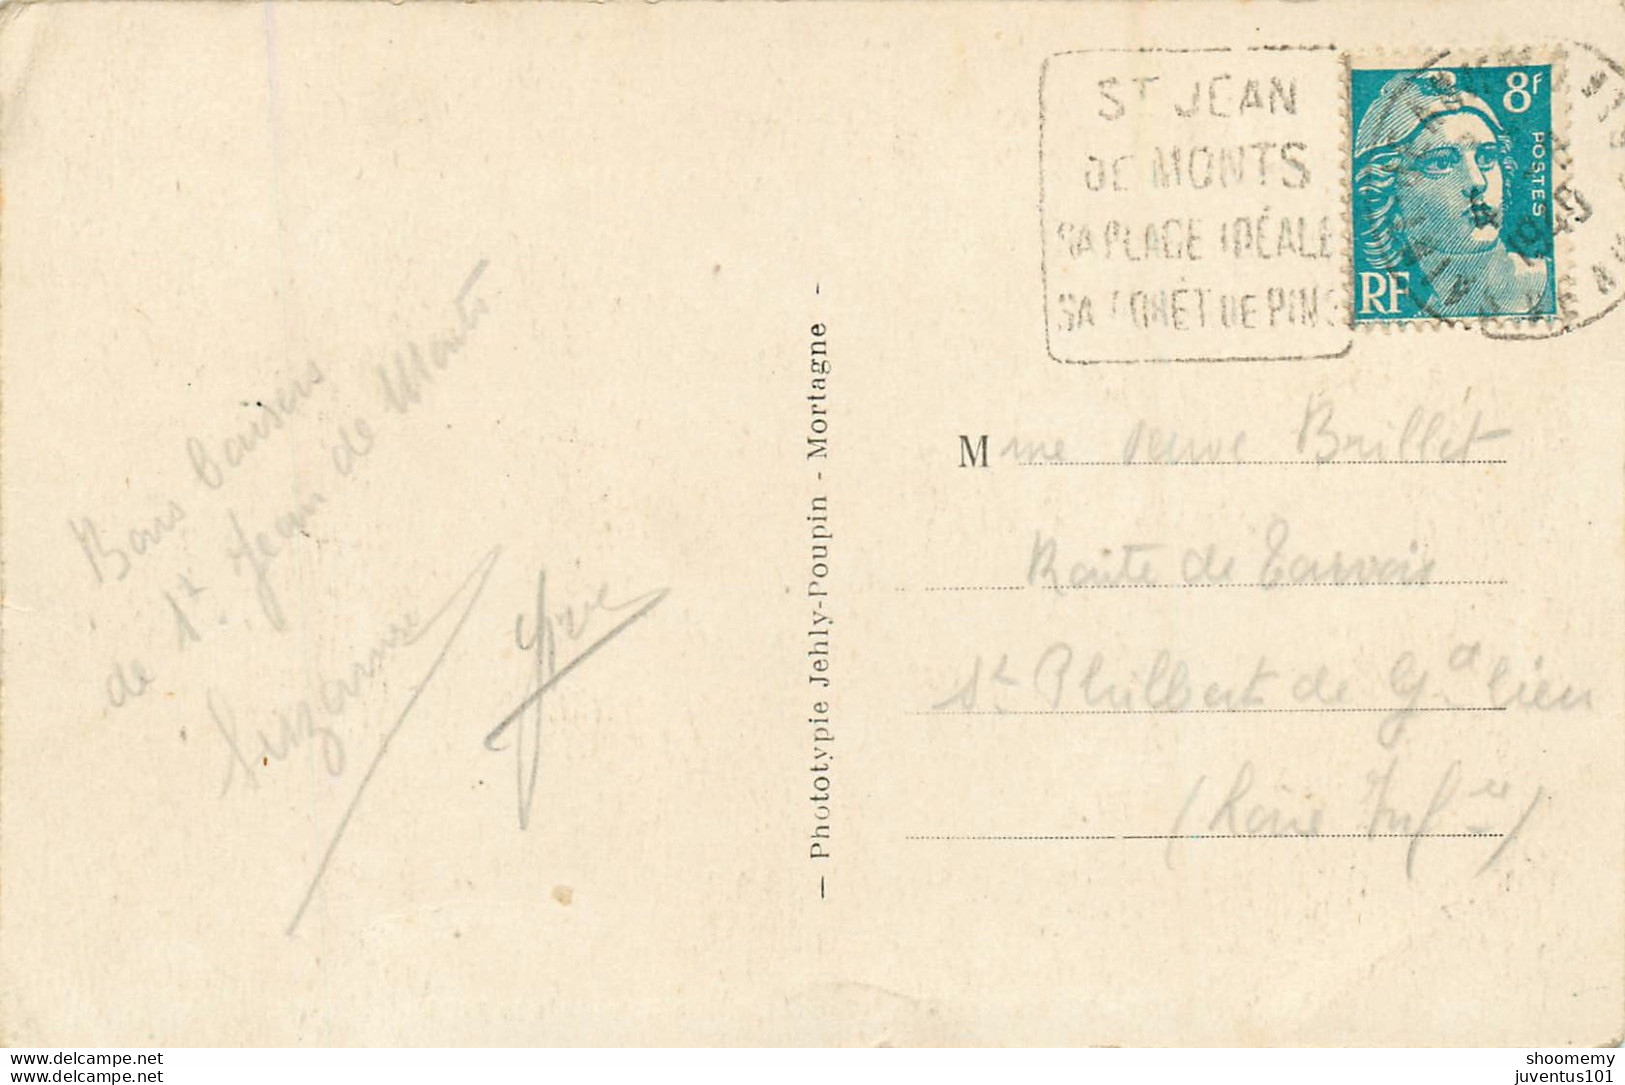 Bons baisers
de St. Jean de Monts
Suzanne
— Phototypie Jehly-Poupin - Mortagne -
ST JEAN
DE MONTS
SA PLAGE IDÉALE
SA FORÊT DE PINS
8F
POSTES
RF
1949
Mme Veuve Brillet
Route de
St Philbert de Gd lieu
(Loire Infre)
www.delcampe.net
shoomemy
juventus101